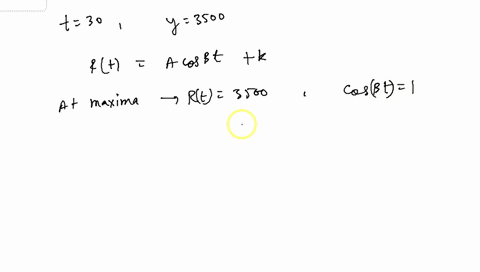 t=30 , y=3500
R(t) = A cosBt + k
At maxima → R(t)=3500 , cos(Bt)=1